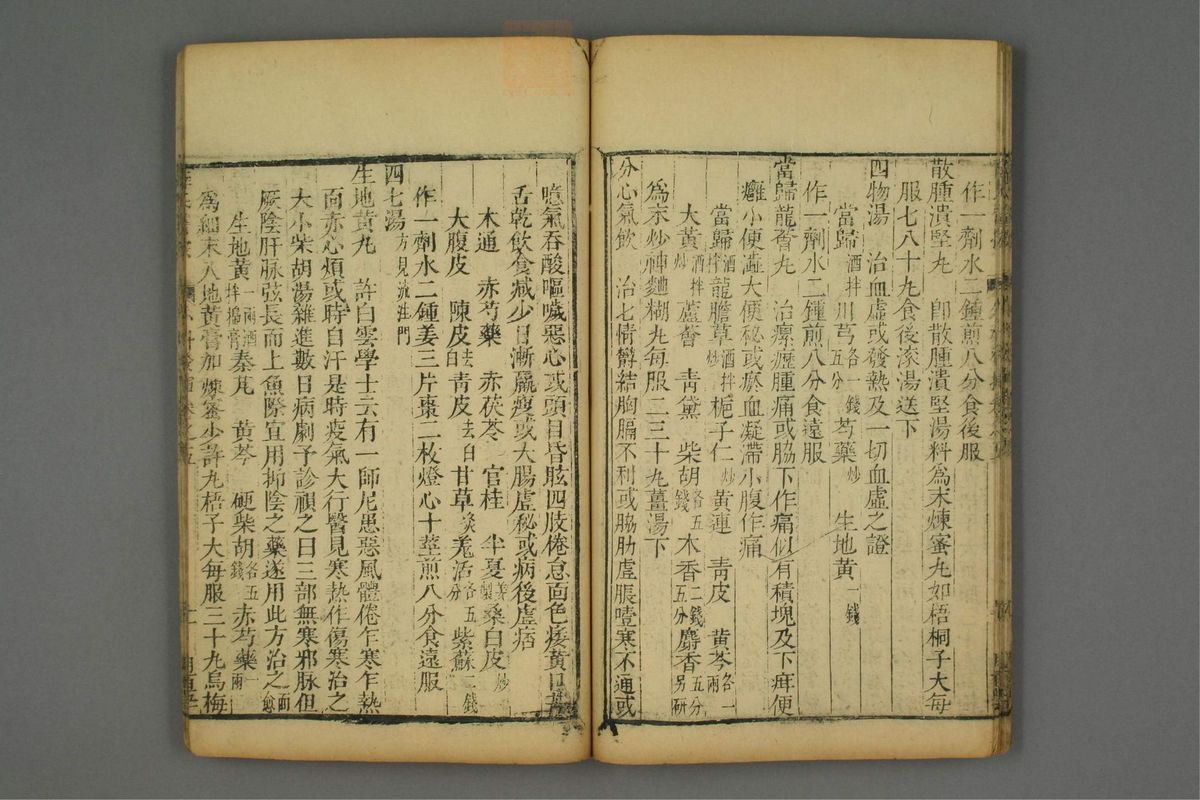 作一劑水二鍾煎八分食後服
散腫潰堅丸　卽散腫潰堅湯料爲末煉蜜丸如梧桐子大每
服七八十丸食後滚湯送下
四物湯　治血虛或發熱及一切血虛之證
當歸酒拌川芎各一錢五分芍藥炒　生地黃一錢
作一劑水二鍾煎八分食遠服
當歸龍薈丸　治瘰癧腫痛或脇下作痛似有積塊及下疳便
癰小便澁大便秘或瘀血凝滯小腹作痛
當歸酒拌龍膽草酒拌炒梔子仁炒黃連　青皮　黃芩各一兩
大黃酒拌炒蘆薈　青黛　柴胡各五錢木香二錢五分麝香五分另研
爲末炒神麯糊丸每服二三十丸薑湯下
分心氣飲　治七情欝結胸膈不利或脇肋虛脹噎塞不通或
噫氣吞酸嘔噦惡心或頭目昏眩四肢倦怠面色痿黃口苦
舌乾飲食减少日漸羸瘦或大腸虛秘或病後虛痞
木通　赤芍藥　赤茯苓　官桂　半夏姜製桑白皮炒
大腹皮　陳皮去白青皮去白甘草炙羌活各五分紫蘇二錢
作一劑水二鍾姜三片棗二枚燈心十莖煎八分食遠服
四七湯方見流注門
生地黃丸　許白雲學士云有一師尼患惡風體倦乍寒乍熱
面赤心煩或時自汗是時疫氣大行醫見寒熱作傷寒治之
大小柴胡湯雜進數日病劇予診視之曰三部無寒邪脉但
厥陰肝脉弦長而上魚際宜用抑陰之藥遂用此方治之而愈
生地黃一兩酒拌搗膏秦艽　黃芩　硬柴胡各五錢赤芍藥一兩
爲細末入地黃膏加煉蜜少許丸梧子大每服三十丸烏梅